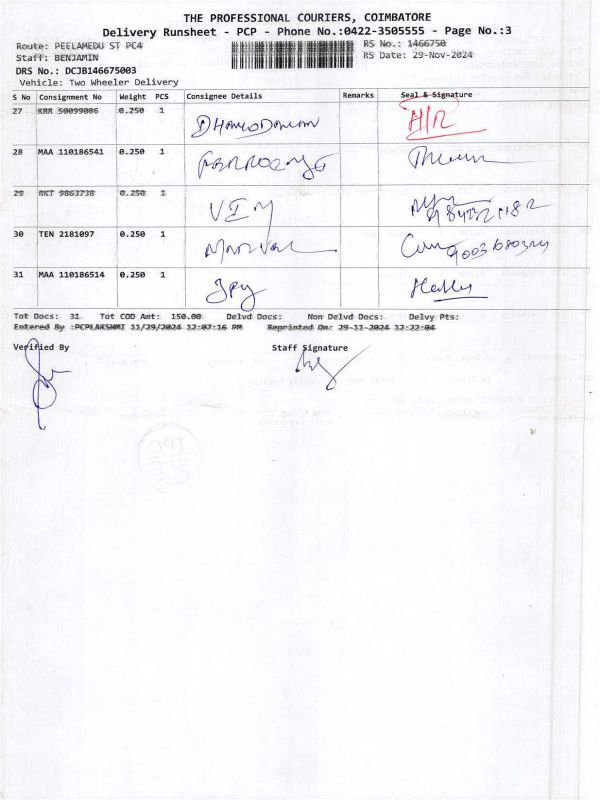 THE PROFESSIONAL COURIERS, COIMBATORE
Delivery Runsheet - PCP - Phone No.:0422-3505555 - Page No.:3
Route: PEELAMEDU ST PC4
RS No.: 1466750
Staff: BENJAMIN
RS Date: 29-Nov-2024
DRS No.: DCJB146675003
Vehicle: Two Wheeler Delivery
S No Consignment No Weight PCS Consignee Details Remarks Seal & Signature
27 KRR 50099086 0.250 1 H/R
28 MAA 110186541 0.250 1
29 RKT 9863738 0.250 1 VIM
30 TEN 2181097 0.250 1
31 MAA 110186514 0.250 1
Tot Docs: 31 Tot COD Amt: 150.00 Delvd Docs: Non Delvd Docs: Delvy Pts:
Entered By :PCPLAKSHMI 11/29/2024 12:07:16 PM Reprinted On: 29-11-2024 12:22:04
Verified By
Staff Signature